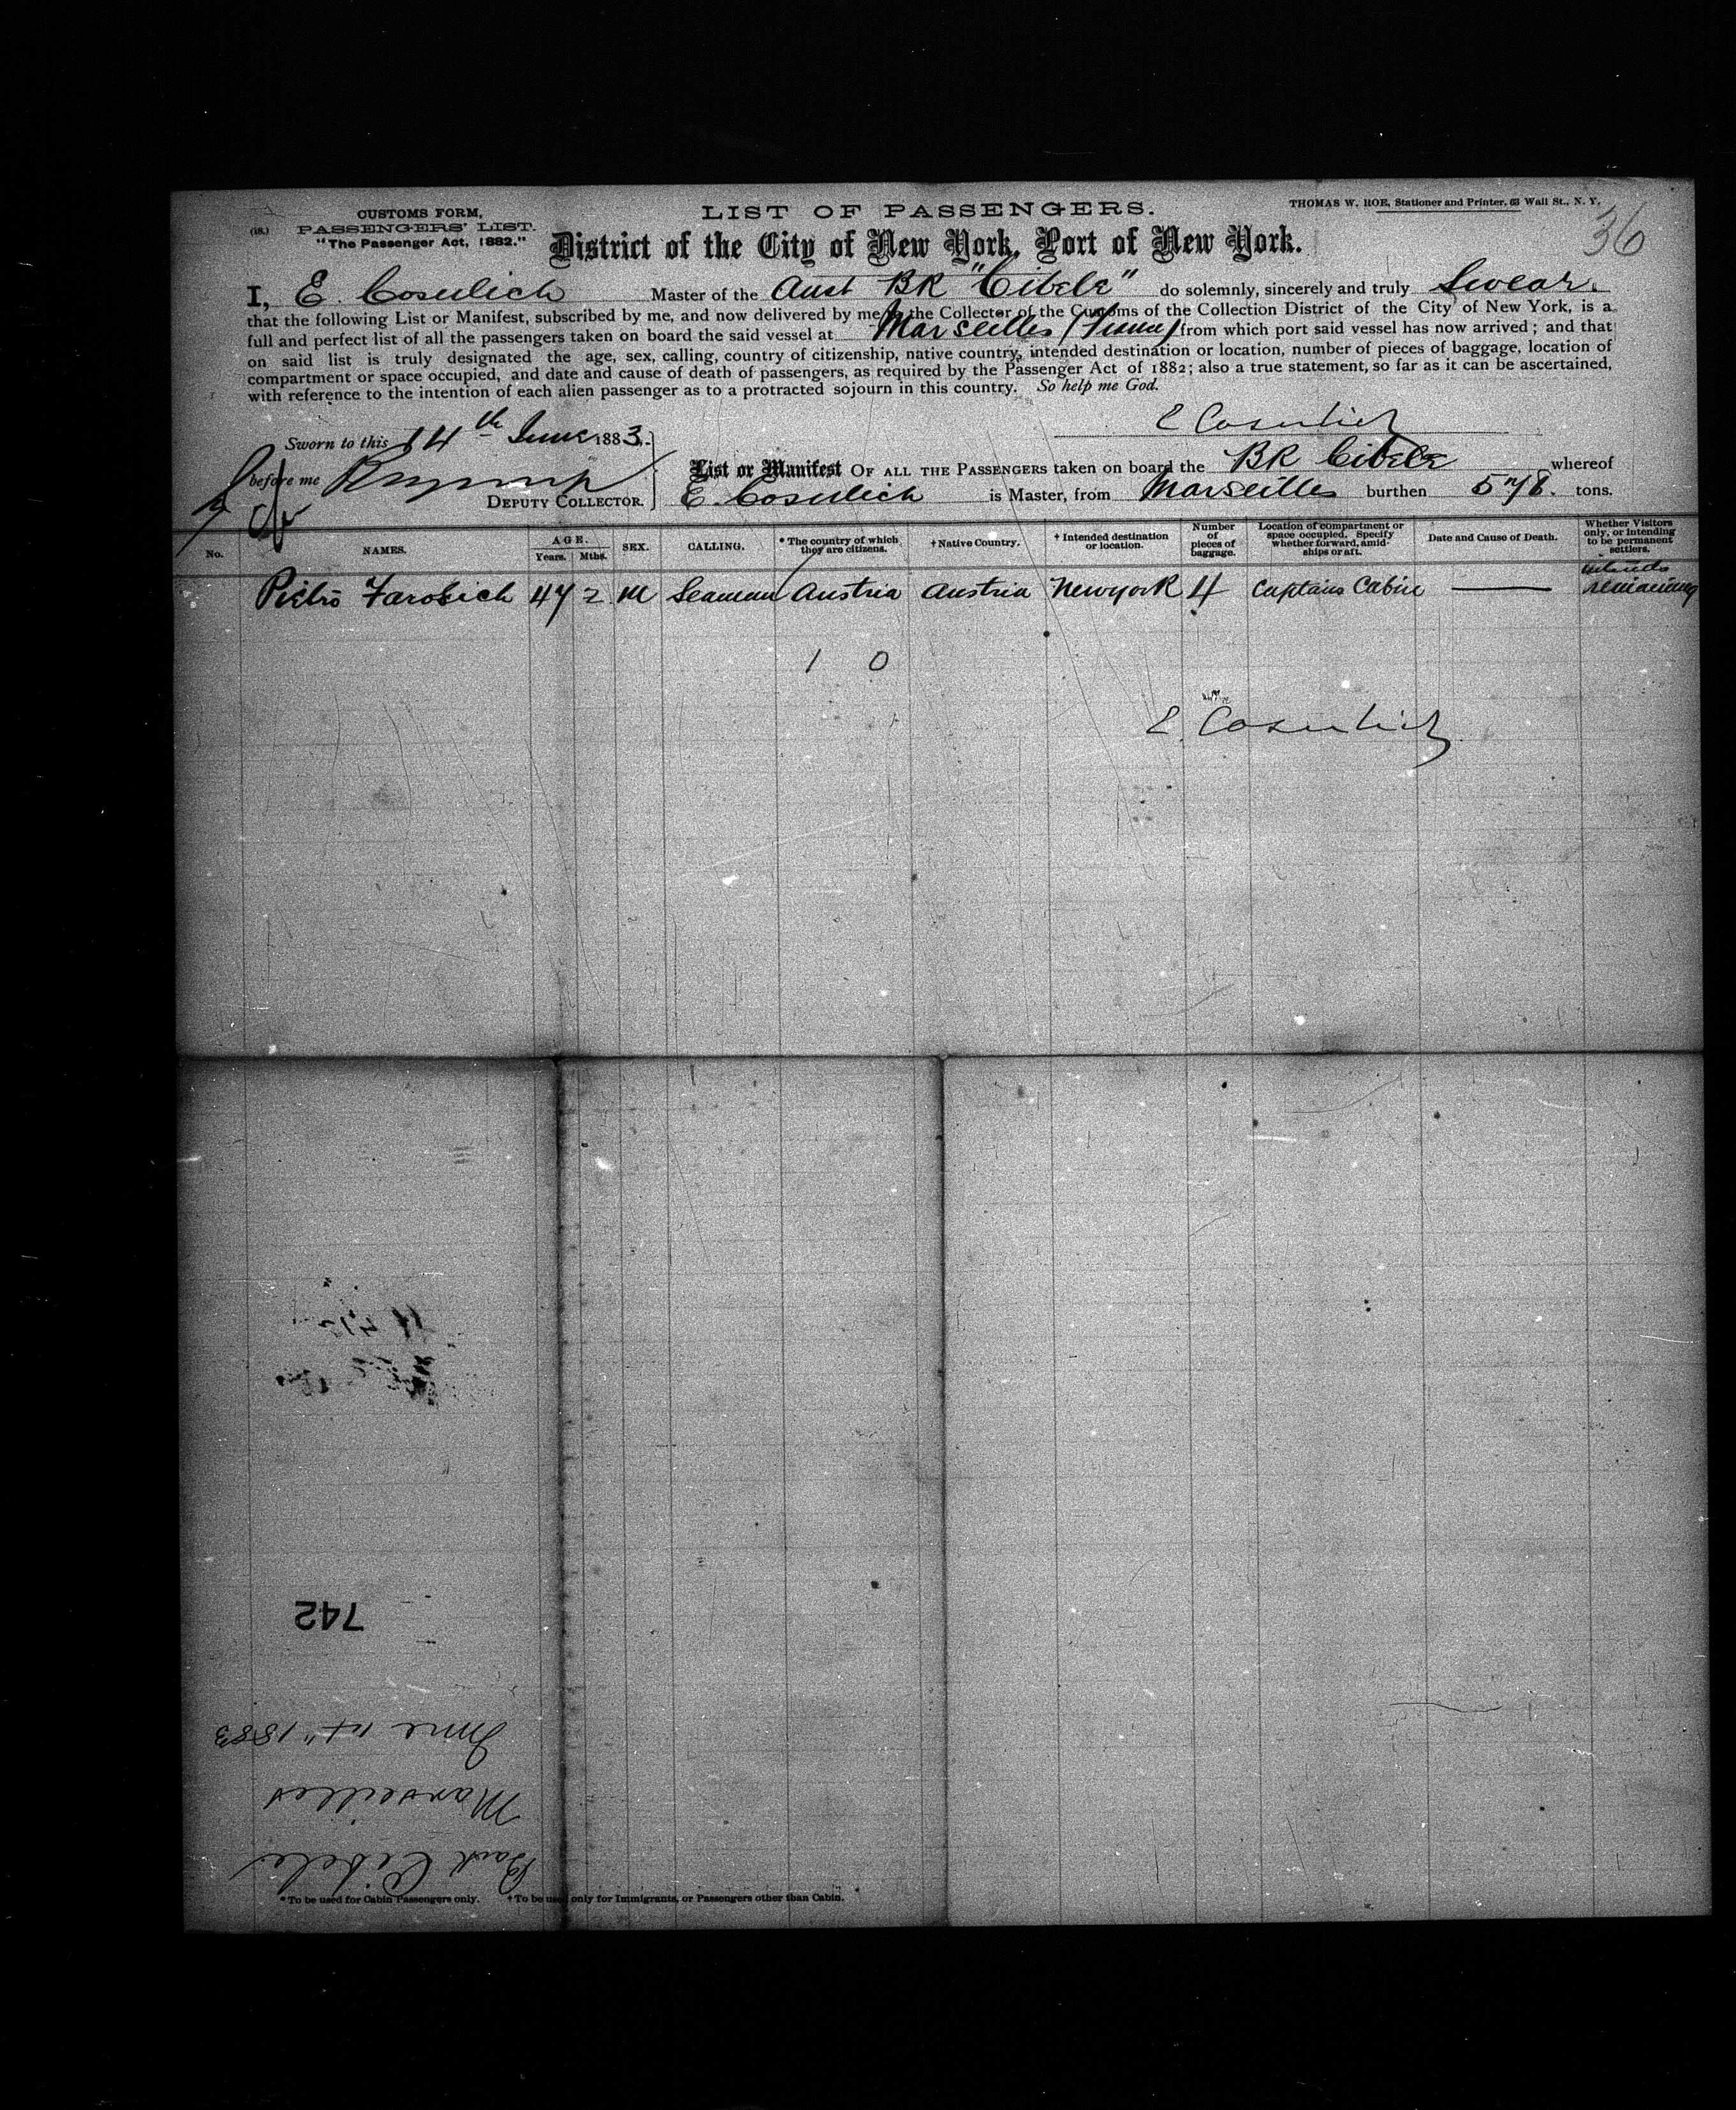 CUSTOMS FORM,
(18.) PASSENGERS' LIST.
"The Passenger Act, 1882."
LIST OF PASSENGERS.
THOMAS W. ROE, Stationer and Printer, 63 Wall St., N. Y.
36
District of the City of New York, Port of New York.
I, E. Cosulich Master of the Aust BK "Cibele" do solemnly, sincerely and truly Swear.
that the following List or Manifest, subscribed by me, and now delivered by me to the Collector of the Customs of the Collection District of the City of New York, is a
full and perfect list of all the passengers taken on board the said vessel at Marseilles from which port said vessel has now arrived; and that
on said list is truly designated the age, sex, calling, country of citizenship, native country, intended destination or location, number of pieces of baggage, location of
compartment or space occupied, and date and cause of death of passengers, as required by the Passenger Act of 1882; also a true statement, so far as it can be ascertained,
with reference to the intention of each alien passenger as to a protracted sojourn in this country. So help me God.
E Cosulich
Sworn to this 14th June 1883.
before me
DEPUTY COLLECTOR.
List or Manifest OF ALL THE PASSENGERS taken on board the BK Cibele whereof
E. Cosulich is Master, from Marseilles burthen tons.
No. NAMES. AGE. Years. Mths. SEX. CALLING. * The country of which they are citizens. † Native Country. † Intended destination or location. Number of pieces of baggage. Location of compartment or space occupied. Specify whether forward, amidships or aft. Date and Cause of Death. Whether Visitors only, or intending to be permanent settlers.
Pietro 47 2 M Seaman Austria Austria Newyork 4 Captains Cabin — intends remaining
1 0
E. Cosulich
742
June 14" 1883
Marseilles
Bark Cibele
* To be used for Cabin Passengers only. † To be used only for Immigrants, or Passengers other than Cabin.